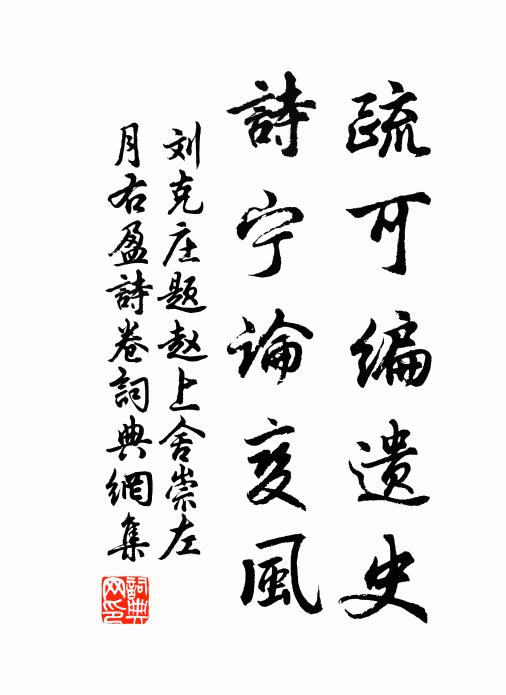 疏可编遗史
詩宁論变風
刘克庄题赵上舍崇左
月右盈詩卷詞典網集
詞典網印